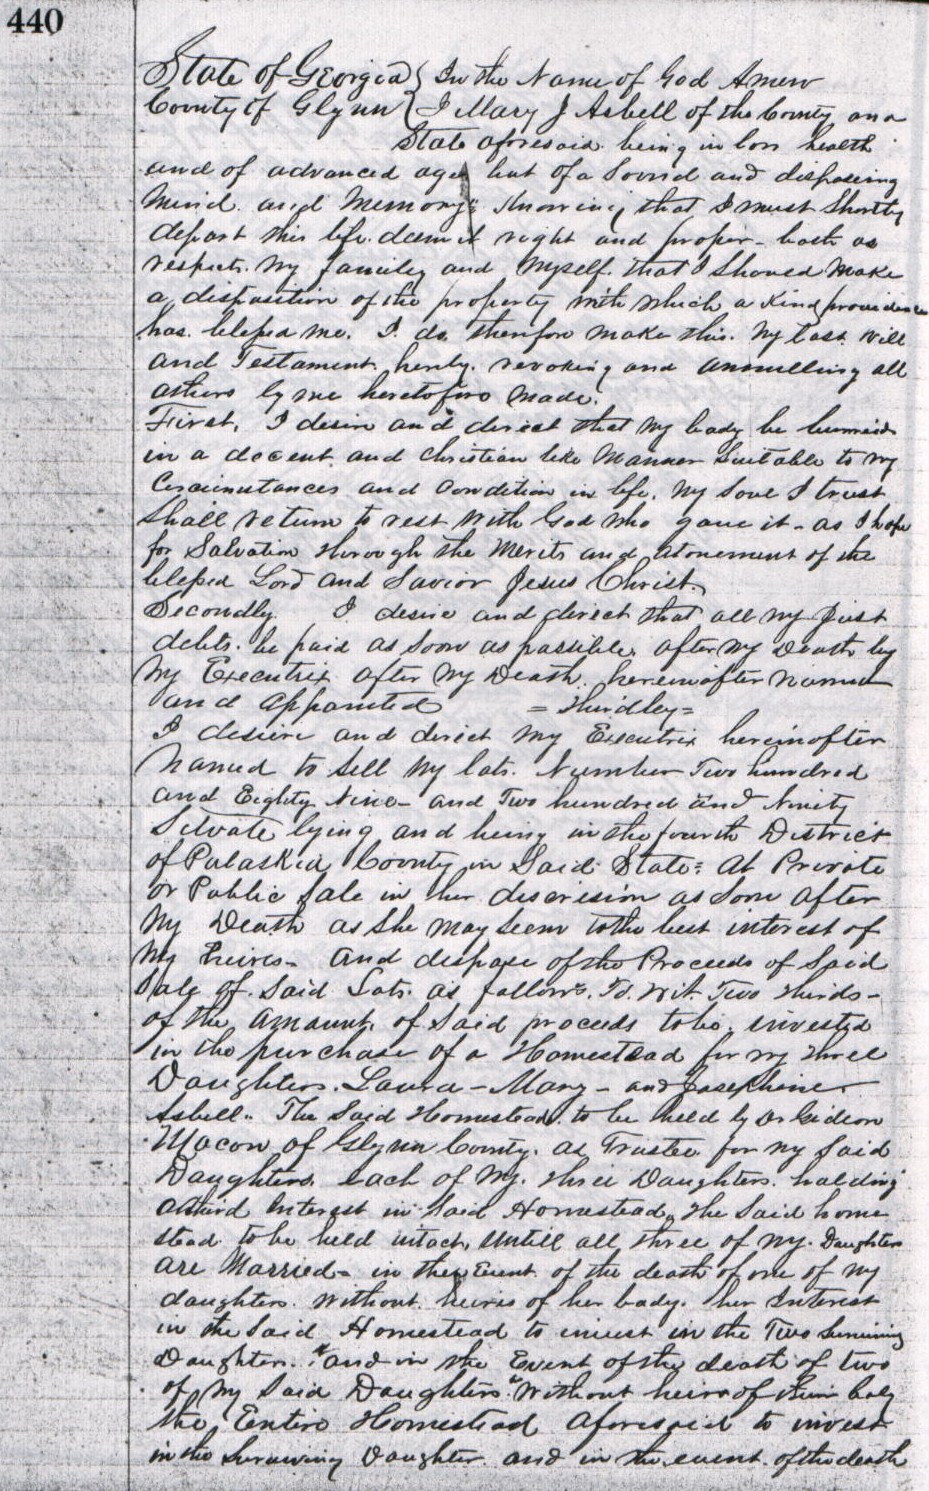 440
State of Georgia } In the Name of God Amen
County of Glynn } I Mary J Asbell of the County and
State aforesaid being in low health
and of advanced age but of a Sound and disposing
Mind and Memory; Knowing that I must Shortly
depart this life deem it right and proper - both as
respects My family and Myself that I Should Make
a disposition of the property with which a Kind providence
has blessed me. I do therefore make this My last Will
and Testament hereby revoking and annulling all
others by me heretofore Made.
First, I desire and direct that My body be burried
in a decent and Christian like Manner Suitable to my
Circumstances and Condition in life, My Soul I trust
Shall return to rest With God who gave it - as I hope
for Salvation through the Merits and atonement of the
blessed Lord and Savior Jesus Christ.
Secondly I desire and direct that all my Just
debts be paid as Soon as possible after My Death by
My Executrix after My Death hereinafter named
and appointed = Thirdley =
I desire and direct My Executrix hereinafter
Named to Sell My lots Number Two hundred
and Eighty Nine - and Two hundred and Ninity
Situate lying and being in the fourth District
of Pulaskia County in Said State = at Private
or Public Sale in her discresion as Soon after
My Death as She May Seem to the best interest of
My heires - And dispose of the Proceeds of Said
Sale of Said Lots as follows. To. Wit. Two thirds -
of the Amount of Said proceeds to be invested
in the purchase of a Homestead for my three
Daughters. Laura - Mary - and Josephine
Asbell. The Said Homestead to be held by Dr Gideon
Macon of Glynn County. as Trustee for my Said
Daughters. each of My three Daughters holding
a third Interest in Said Homestead, the Said home
stead to be held intact, Untill all three of my Daughters
are Married - in the Event of the death of one of My
daughters Without heires of her body. her Interest
in the Said Homestead to invest in the Two Surviving
Daughters. and in the Event of the death of two
of My Said Daughters Without heirs of their body
the Entire Homestead Aforesaid to invest
in the Surviving Daughter and in the event of the death